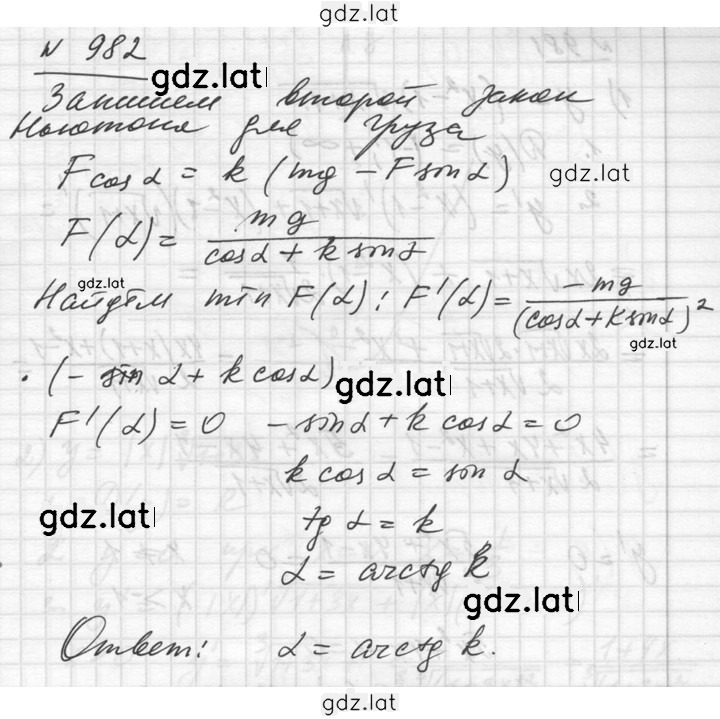 gdz.lat
N 982
gdz.lat
Запишем второй закон
Ньютона для груза
F cos α = k (mg − F sin α)
gdz.lat
F(α) = mg / (cos α + k sin α)
gdz.lat
Найдём min F(α): F'(α) = −mg / (cos α + k sin α)²
gdz.lat
· (− sin α + k cos α)
gdz.lat
F'(α) = 0 − sin α + k cos α = 0
k cos α = sin α
gdz.lat
tg α = k
α = arctg k
gdz.lat
Ответ: α = arctg k.
gdz.lat